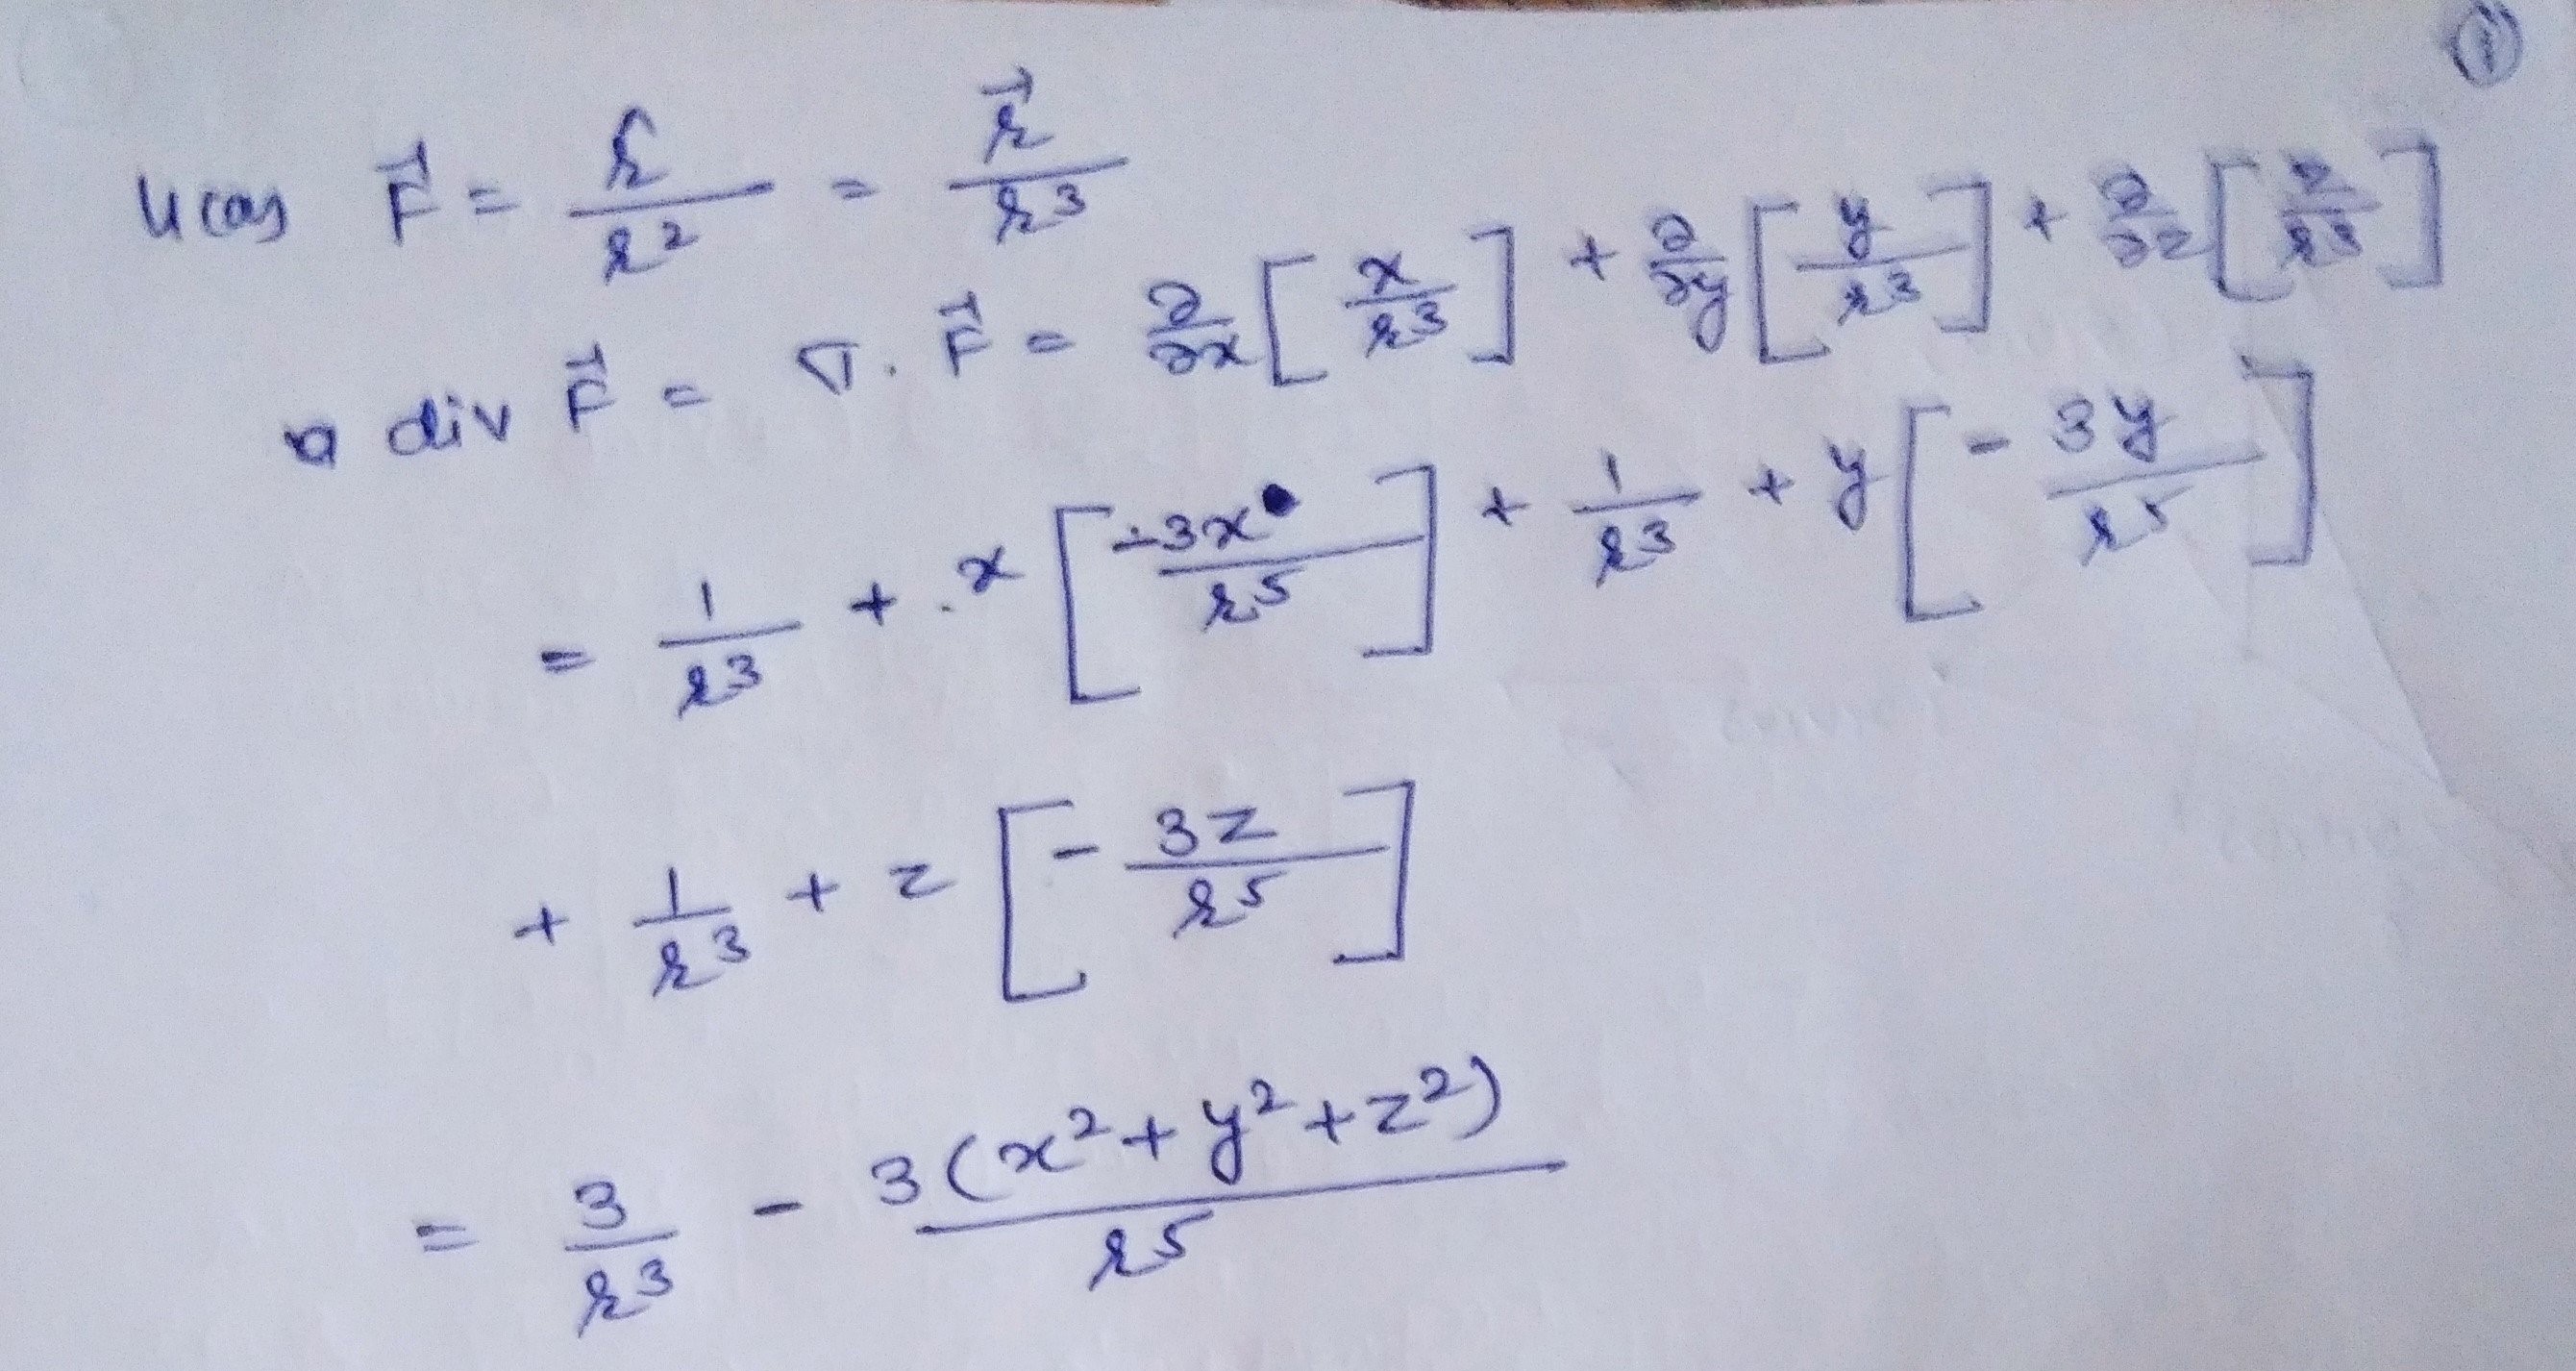 4(a) F⃗ = r̂/r² = r⃗/r³
div F⃗ = ∇. F⃗ = ∂/∂x [x/r³] + ∂/∂y [y/r³] + ∂/∂z [z/r³]
= 1/r³ + x [-3x/r⁵] + 1/r³ + y [- 3y/r⁵]
+ 1/r³ + z [- 3z/r⁵]
= 3/r³ - 3(x² + y² + z²)/r⁵